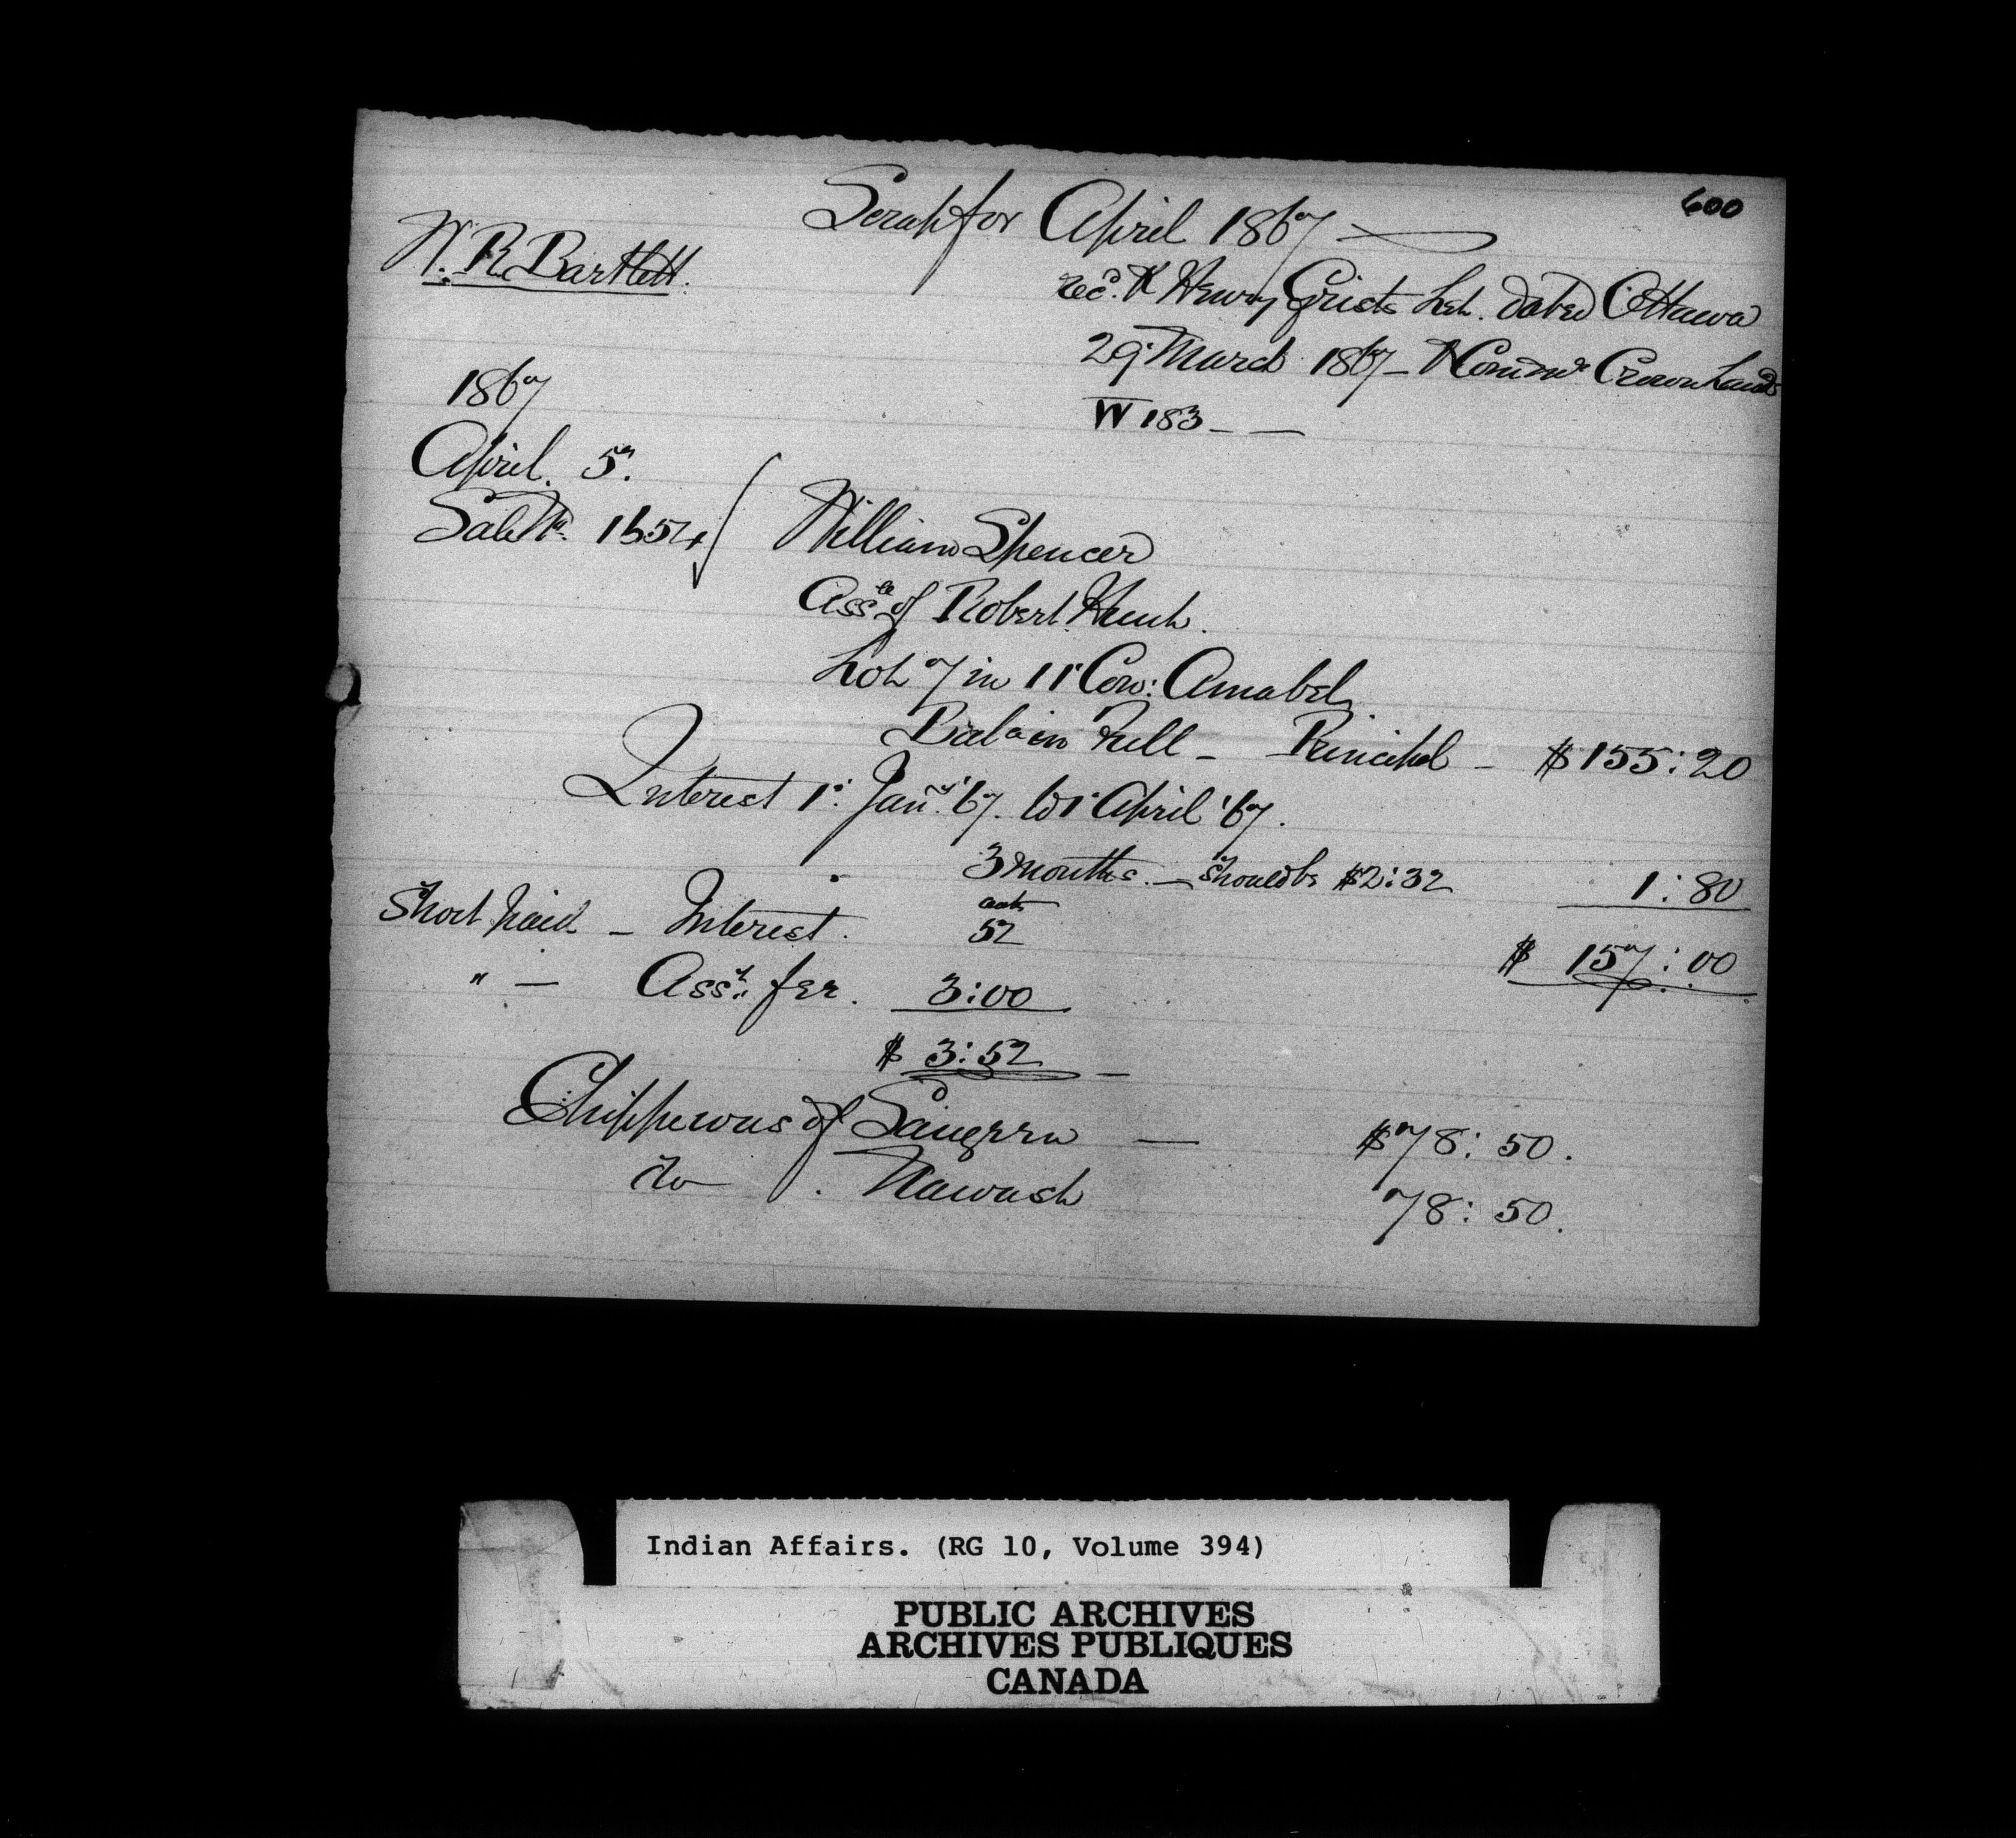 600
Scrap for April 1867
W. R. Bartlett.
rec'd. Henry Grists Let. dated Ottawa
29 March 1867 - Crown Lands
W 183 - -
1867
April. 5th.
Sale No. 1654 William Spencer
Assee of Robert
Lot 7 in 11 Con: Amabel
Balce in full - Principal - $155:20
Interest 1st Jany '67. to 1 April '67.
3 months. - should be $2:32 1:80
Short paid - Interest. 52 $ 157:00
" - Asst. fee. 3:00
$ 3:52 -
Chippewas of Saugeen - $78:50.
do . Nawash 78:50.
Indian Affairs. (RG 10, Volume 394)
PUBLIC ARCHIVES
ARCHIVES PUBLIQUES
CANADA